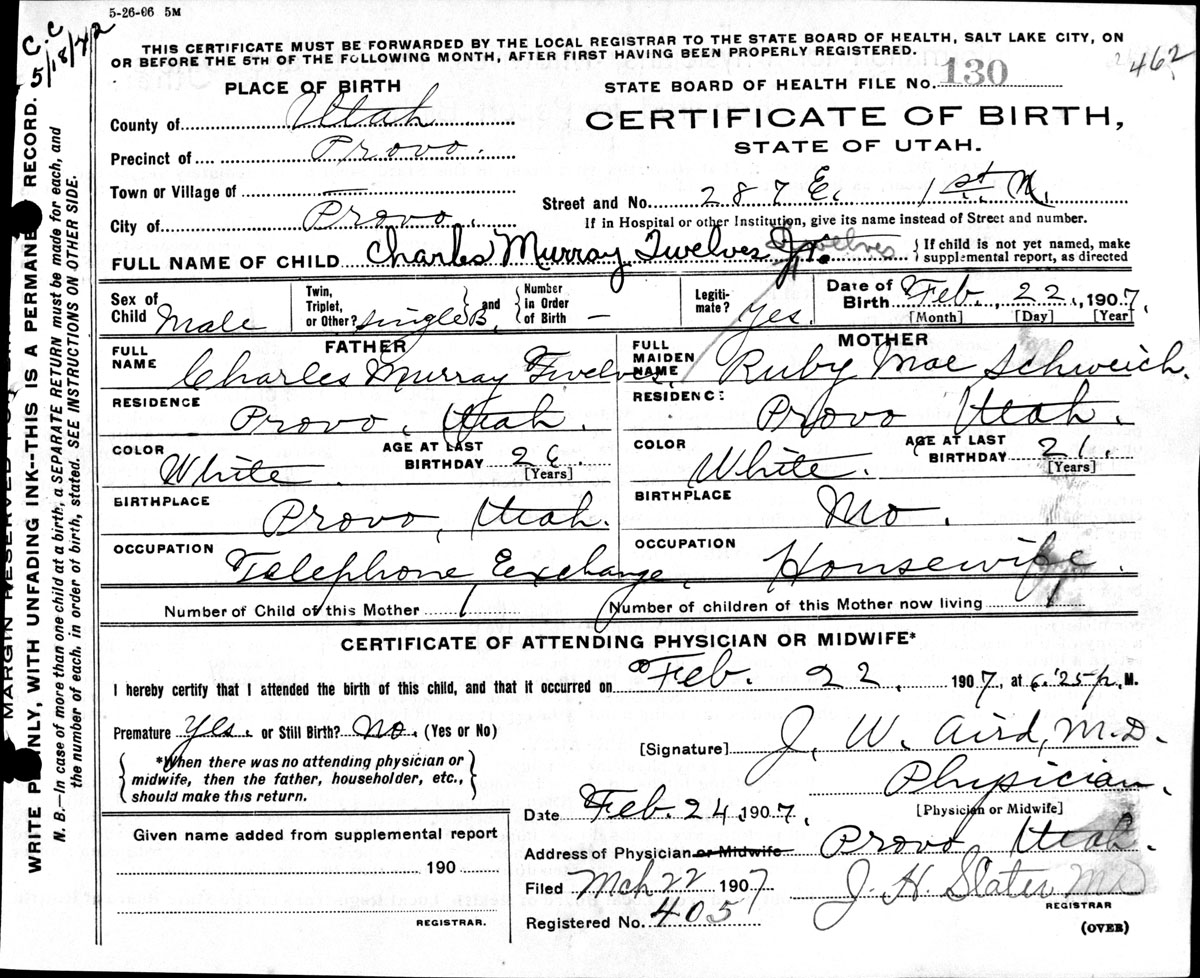 5-26-06 5M
C C
5/18/42
THIS CERTIFICATE MUST BE FORWARDED BY THE LOCAL REGISTRAR TO THE STATE BOARD OF HEALTH, SALT LAKE CITY, ON
OR BEFORE THE 5TH OF THE FOLLOWING MONTH, AFTER FIRST HAVING BEEN PROPERLY REGISTERED.
462
PLACE OF BIRTH
STATE BOARD OF HEALTH FILE NO. 130
County of Utah
CERTIFICATE OF BIRTH,
Precinct of Provo.
STATE OF UTAH.
Town or Village of —
Street and No. 287 E. 1st. N
City of Provo.
If in Hospital or other Institution, give its name instead of Street and number.
FULL NAME OF CHILD Charles Murray Twelves Jr. Twelves
{If child is not yet named, make
supplemental report, as directed
Sex of Child Male
Twin, Triplet, or Other? Single B. and {Number in Order of Birth —
Legitimate? Yes.
Date of Birth Feb. 22, 1907.
[Month] [Day] [Year]
FATHER
MOTHER
FULL NAME Charles Murray Twelves.
FULL MAIDEN NAME Ruby Mae Schweich.
RESIDENCE Provo, Utah.
RESIDENCE Provo Utah.
COLOR White.
AGE AT LAST BIRTHDAY 26. [Years]
COLOR White.
AGE AT LAST BIRTHDAY 21. [Years]
BIRTHPLACE Provo, Utah.
BIRTHPLACE Mo.
OCCUPATION Telephone Exchange,
OCCUPATION Housewife.
Number of Child of this Mother 1
Number of children of this Mother now living 1
CERTIFICATE OF ATTENDING PHYSICIAN OR MIDWIFE*
I hereby certify that I attended the birth of this child, and that it occurred on Feb. 22, 1907, at 6.25 p. M.
Premature Yes. or Still Birth? No. (Yes or No)
[Signature] J. W. Aird, M.D.
{*When there was no attending physician or
midwife, then the father, householder, etc.,
should make this return.}
Physician.
[Physician or Midwife]
Date Feb. 24, 1907,
Given name added from supplemental report
190
REGISTRAR.
Address of Physician or Midwife Provo, Utah.
Filed Mch 22 1907
J. H. Slater MD
REGISTRAR
Registered No. 405
(OVER)
MARGIN RESERVED FOR
WRITE PLAINLY, WITH UNFADING INK--THIS IS A PERMANENT RECORD.
N. B.—In case of more than one child at a birth, a SEPARATE RETURN must be made for each, and
the number of each, in order of birth, stated. SEE INSTRUCTIONS ON OTHER SIDE.